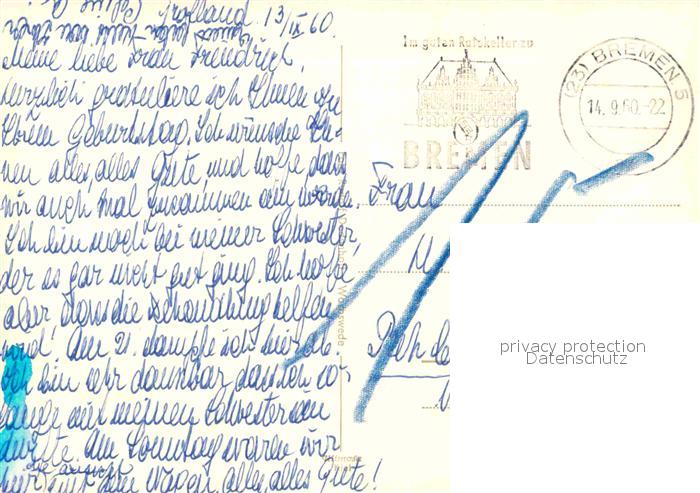 Holland 13/IX 60.
Meine liebe Frau
herzlich gratuliere ich Ihnen zu
Ihrem Geburtstag. Ich wünsche Ih-
nen alles, alles Gute, und hoffe, dass
wir auch mal zusammen sein werden.
Ich bin noch bei meiner Schwester,
der es gar nicht gut ging. Ich hoffe
aber dass die Behandlung helfen
wird! Am 21. dampfe ich hier ab.
Ich bin sehr dankbar dass ich so
lange mit meiner Schwester sein
durfte. Am Sonntag waren wir
mit dem Wagen. alles, alles Gute!
Im guten Ratskeller zu
BREMEN
(23) BREMEN 5
14. 9. 60.-22
Frau
Worpswede
privacy protection
Datenschutz